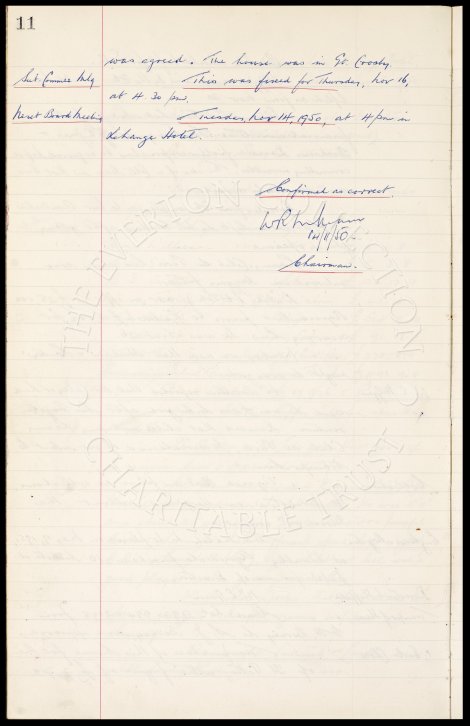 11
was agreed. The house was in Gt. Crosby.
Sub Commee Mtg This was fixed for Thursday, Nov 16,
at 4.30 pm.
Next Board Meeting Tuesday, Nov 14, 1950, at 4 pm in
Exchange Hotel.
Confirmed as correct.
14/11/50.
Chairman.
THE EVERTON COLLECTION
CHARITABLE TRUST